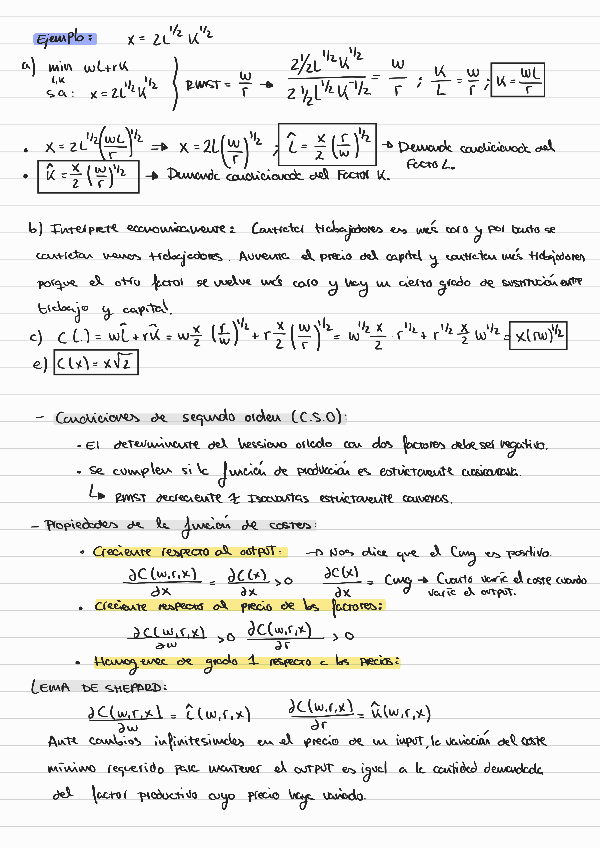 Ejemplo: x = 2L^1/2 K^1/2
a) min wL+rK } RMST = w/r → (2 1/2 L^-1/2 K^1/2)/(2 1/2 L^1/2 K^-1/2) = w/r ; K/L = w/r ; K = wL/r
L,K
s.a: x = 2L^1/2 K^1/2
• x = 2L^1/2 (wL/r)^1/2 ⇒ x = 2L(w/r)^1/2 ; L̂ = x/2 (r/w)^1/2 → Demanda condicionada del Factor L.
• K̂ = x/2 (w/r)^1/2 → Demanda condicionada del Factor K.
b) Interprete economicamente: Contratar trabajadores es más caro y por tanto se
contratan menos trabajadores. Aumenta el precio del capital y contratan más trabajadores
porque el otro factor se vuelve más caro y hay un cierto grado de sustitución entre
trabajo y capital.
c) C(.) = wL̂ + rK̂ = w x/2 (r/w)^1/2 + r x/2 (w/r)^1/2 = w^1/2 x/2 · r^1/2 + r^1/2 x/2 w^1/2 = x(rw)^1/2
e) C(x) = x√2
- Condiciones de segundo orden (C.S.O):
• El determinante del hessiano orlado con dos factores debe ser negativo.
• Se cumplen si la función de producción es estrictamente cuasiconcava.
↳ RMST decreciente y Isocuantas estrictamente convexas.
- Propiedades de la función de costes:
• Creciente respecto al output. → Nos dice que el Cmg es positivo.
∂C(w,r,x)/∂x = ∂C(x)/∂x > 0 ∂C(x)/∂x = Cmg → Cuanto varía el coste cuando varía el output.
• Creciente respecto al precio de los factores:
∂C(w,r,x)/∂w > 0 ∂C(w,r,x)/∂r > 0
• Homogenea de grado 1 respecto a los precios:
LEMA DE SHEPARD:
∂C(w,r,x)/∂w = L̂(w,r,x) ∂C(w,r,x)/∂r = K̂(w,r,x)
Ante cambios infinitesimales en el precio de un input, la variación del coste
mínimo requerido para mantener el output es igual a la cantidad demandada
del factor productivo cuyo precio haya variado.